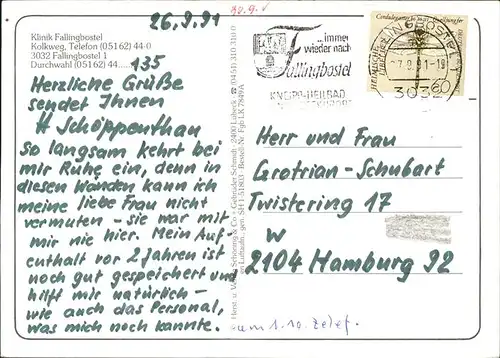 30.9.
26.9.91
Klinik Fallingbostel
Kolkweg, Telefon (05162) 44-0
3032 Fallingbostel 1
Durchwahl (05162) 44......135
Herzliche Grüße
sendet Ihnen
H Schöppenthau
so langsam kehrt bei
mir Ruhe ein, denn in
diesen Wänden kann ich
meine liebe Frau nicht
vermuten - sie war mit
mir nie hier. Mein Auf-
enthalt vor 2 Jahren ist
noch gut gespeichert und
hilft mir natürlich -
wie auch das Personal,
was mich noch kannte.
Gebrüder Schmidt · 2400 Lübeck · ☎ (0451) 310 310
SH 1-51803 · Bestell-Nr. Fgb LK 7849A
...immer
wieder nach
Fallingbostel
KNEIPP-HEILBAD
FALLINGBOSTEL 1
3032
60
HEIMISCHE
LIBELLEN
Herr und Frau
Grotrian-Schubart
Twistering 17
W
2104 Hamburg 92
am 1.10. telef.